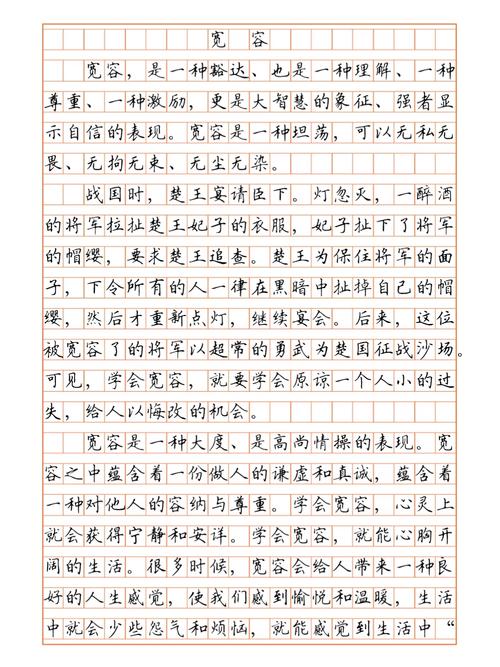 宽容
宽容，是一种豁达、也是一种理解、一种
尊重、一种激励，更是大智慧的象征、强者显
示自信的表现。宽容是一种坦荡，可以无私无
畏、无拘无束、无尘无染。
战国时，楚王宴请臣下。灯忽灭，一醉酒
的将军拉扯楚王妃子的衣服，妃子扯下了将军
的帽缨，要求楚王追查。楚王为保住将军的面
子，下令所有的人一律在黑暗中扯掉自己的帽
缨，然后才重新点灯，继续宴会。后来，这位
被宽容了的将军以超常的勇武为楚国征战沙场。
可见，学会宽容，就要学会原谅一个人小的过
失，给人以悔改的机会。
宽容是一种大度、是高尚情操的表现。宽
容之中蕴含着一份做人的谦虚和真诚，蕴含着
一种对他人的容纳与尊重。学会宽容，心灵上
就会获得宁静和安详。学会宽容，就能心胸开
阔的生活。很多时候，宽容会给人带来一种良
好的人生感觉，使我们感到愉悦和温暖，生活
中就会少些怨气和烦恼，就能感觉到生活中“